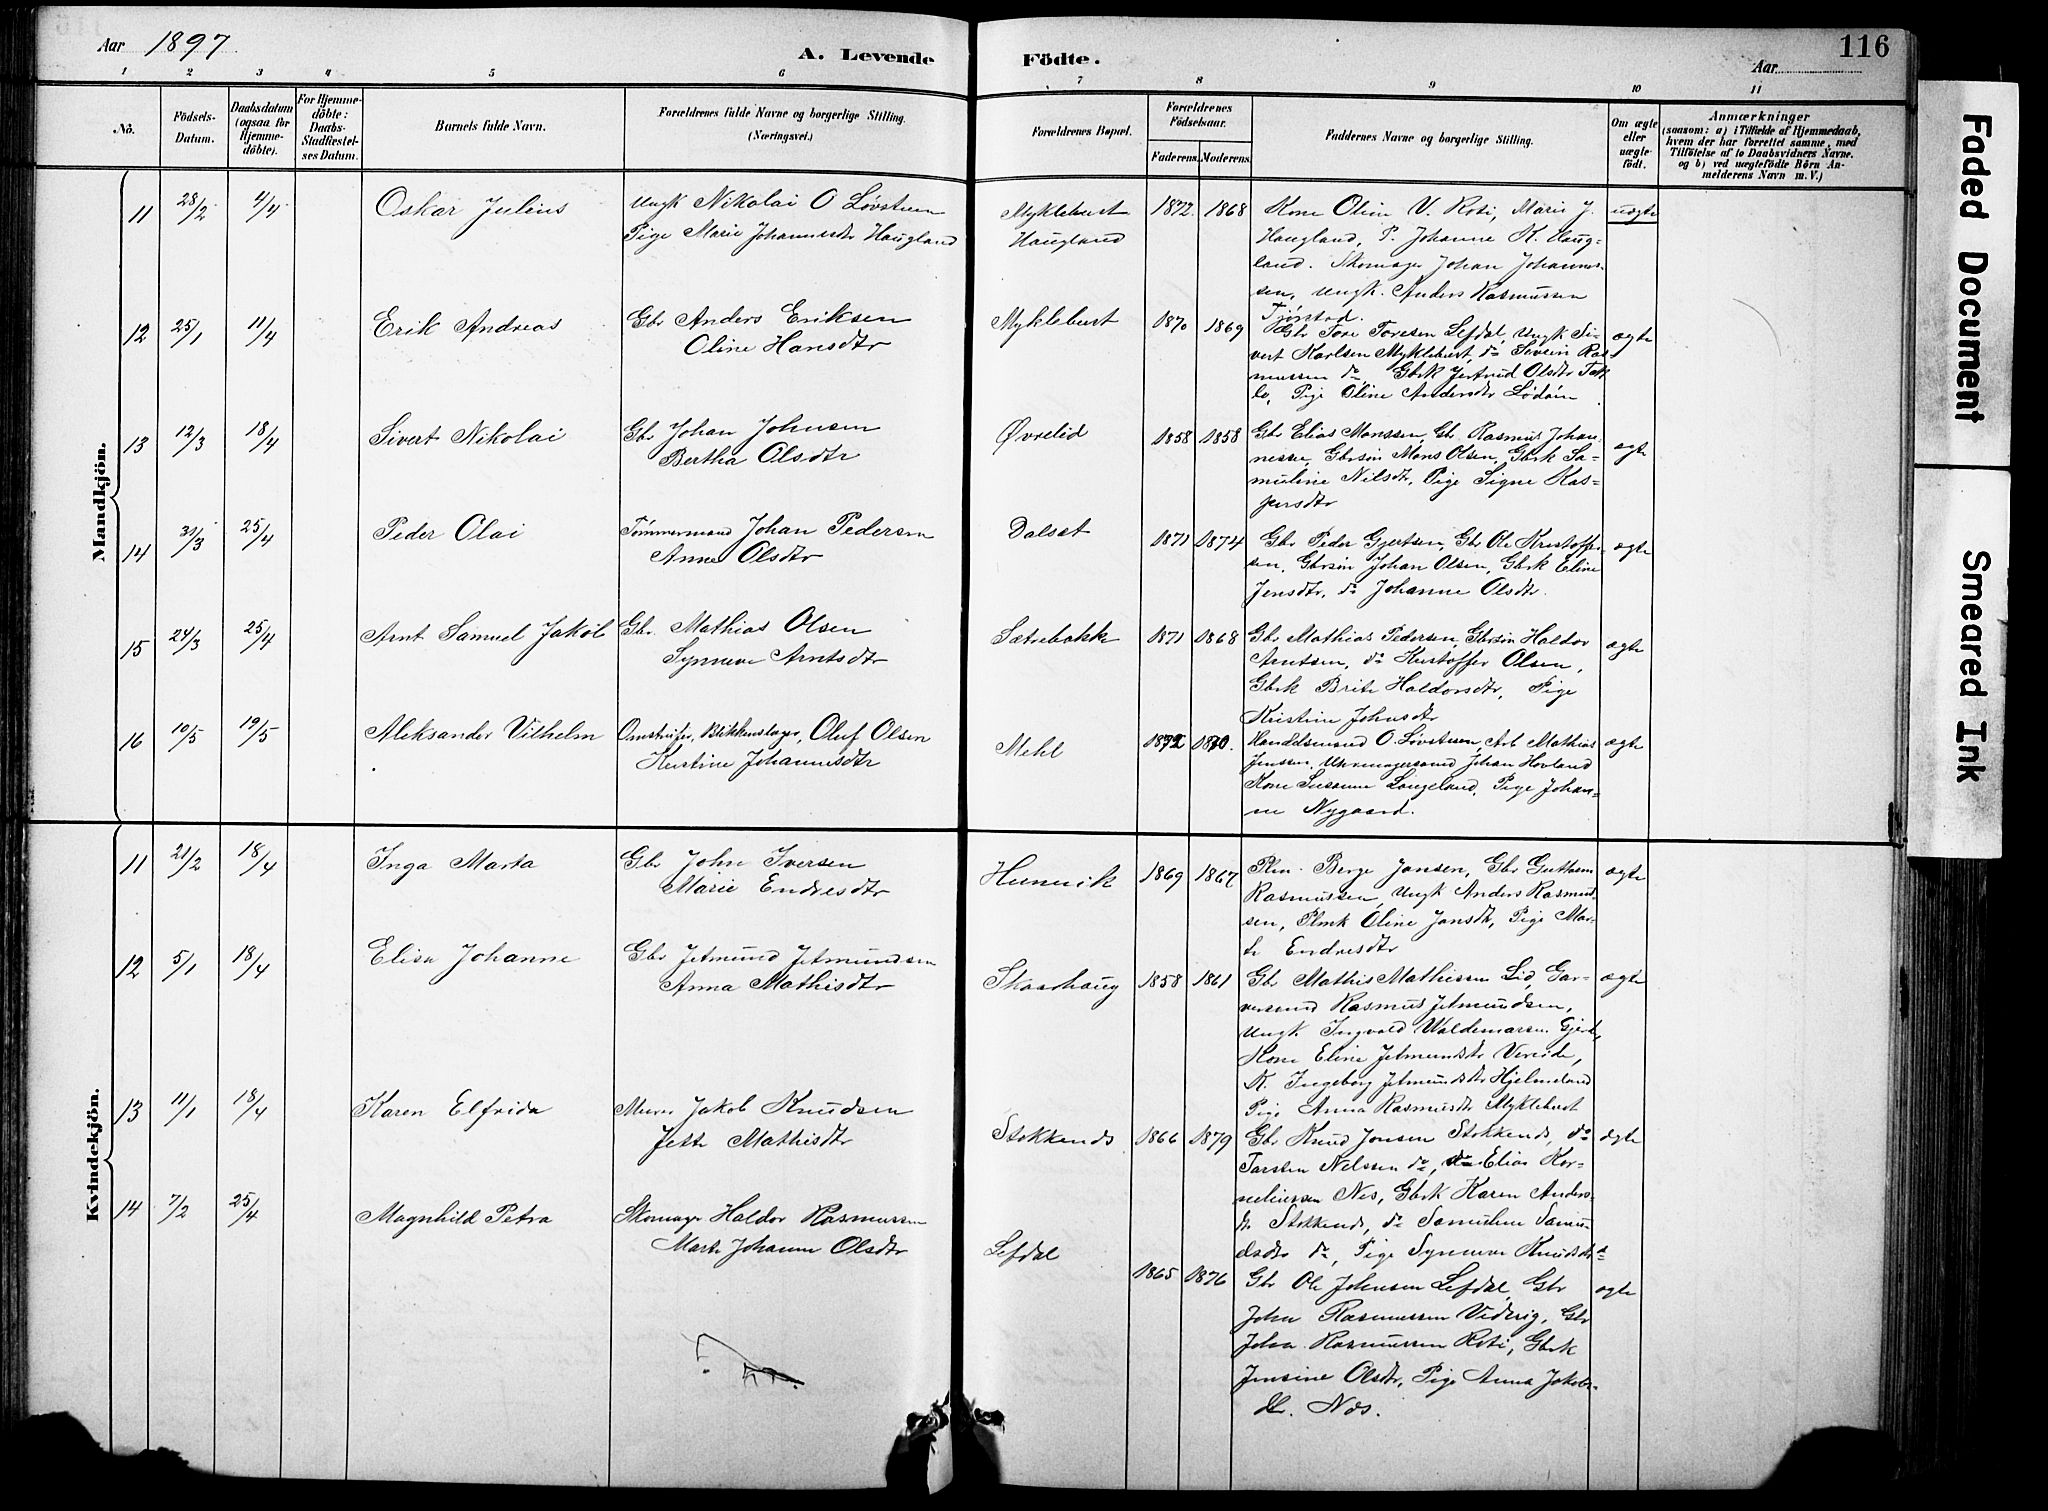 Aar 1897
A. Levende Födte.
Aar
116
1 2 3 4 5 6 7 8 9 10 11
No.
Födsels-
Datum.
Daabsdatum
(ogsaa for
Hjemme-
döbte).
For Hjemme-
döbte:
Daabs-
Stadfæstel-
ses Datum.
Barnets fulde Navn.
Forældrenes fulde Navne og borgerlige Stilling.
(Næringsvei.)
Forældrenes Bopæl.
Forældrenes
Födselsaar.
Faderens. Moderens.
Faddernes Navne og borgerlige Stilling.
Om ægte
eller
uægte
födt.
Anmærkninger
(saasom: a) i Tilfælde af Hjemmedaab,
hvem der har forrettet samme, med
Tilföielse af to Daabsvidners Navne,
og b) ved uægtefödte Börn An-
melderens Navn m. V.)
Mandkjön.
11 28/2 4/4 Oskar Julius
Ungk Nikolai O Løvsteen
Pige Marie Johannesdtr Haugland
Myklebust
Haugland
1872. 1868
Kone Oline V. Roti, Marie J.
Haugland, P. Johanne K. Haug-
land. Skomager Johan Johannes-
sen, Ungk. Anders Rasmussen
Tjørstad.
uægte
12 25/1 11/4 Erik Andreas
Gbr Anders Eriksen
Oline Hansdtr
Myklebust
1870 1869
Gbr Tore Toresen Lefdal, Ungk Si-
vert Karlsen Myklebust, do Severin Ras-
mussen do, Gbrk Jertrud Olsdtr
Pige Oline Andersdtr
ægte
13 12/3 18/4 Sivert Nikolai
Gbr Johan Johnsen
Bertha Olsdtr
Øvrelid
1858 1858
Gbr Elias Monssen, Gbr Rasmus Johan-
nessen, Gbrsøn Mons Olsen, Gbrk Sa-
muline Nilsdtr, Pige Signe Kas-
persdtr
ægte
14 31/3 25/4 Peder Olai
Tømmermand Johan Pedersen
Anne Olsdtr
Dalset
1871 1874
Gbr Peder Gjertsen, Gbr Ole Kristoffer-
sen, Gbrsøn Johan Olsen, Gbrk Eline
Jensdtr, do Johanne Olsdtr.
ægte
15 24/3 25/4 Arnt Samuel Jakob
Gbr. Mathias Olsen
Synneve Arntsdtr
Sætrebakk
1871 1868
Gbr Mathias Pedersen, Gbrsøn Haldor
Arntsen, do Kristoffer Olsen,
Gbrk Brite Haldorsdtr, Pige
Kristine Johnsdtr
ægte
16 10/5 19/5 Aleksander Vilhelm
Omstreifer, Blikkenslager, Oluf Olsen
Kristine Johannesdtr
Mehl
1872 1870.
Handelsmand O. Løvsteen, Arb Mathias
Jenssen, Uhrmagersvend Johan Hovland
Kone Susanne Langeland, Pige Johan-
ne Nygaard.
ægte
Kvindekjön.
11 21/2 18/4 Inga Marta
Gbr John Iversen
Marie Endresdtr
Hunnvik
1869 1867
Plm. Berge Jonsen, Gbr Guttorm
Rasmussen, Ungk Anders Rasmus-
sen, Plmk Oline Jonsdtr, Pige Mar-
te Endresdtr
ægte
12 5/1 18/4 Elisa Johanne
Gbr Jetmund Jetmundsen
Anna Mathisdtr
Skaarhaug
1858 1861
Gbr Mathis Mathissen Lid, Gar-
versvend Rasmus Jetmundsen,
Ungk Ingvald Waldemarsen
Kone Eline Jetmundsdtr Vereide,
K. Ingeborg Jetmundsdtr Hjelmeland
Pige Anna Rasmusdtr Myklebust
ægte
13 11/1 18/4 Karen Elfrida
Murer Jakob Knudsen
Jette Mathisdtr
Stokkenes
1866 1879
Gbr Knud Jonsen Stokkenes, do
Torsten Nelssen do, do Elias Kor-
neliussen Nes, Gbrk Karen Anders-
dtr Stokkenes, do Samuline Samu-
elsdtr do, Pige Synneve Knudsdtr do
ægte
14 7/2 25/4 Magnhild Petra
Skomager Haldor Rasmussen
Marte Johanne Olsdtr
Lefdal
1865 1876
Gbr Ole Johnsen Lefdal, Gbr
John Rasmussen Viderig, Gbr
Johan Rasmussen Roti, Gbrk
Jensine Olsdtr, Pige Anna Jakobs-
dtr. Nos.
ægte
Faded Document
Smeared Ink